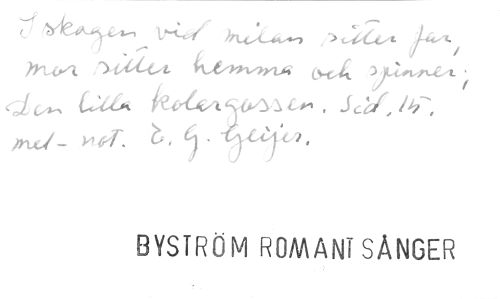 I skogen vid milan sitter far,
mor sitter hemma och spinner;
Den lilla kolargossen. Sid. 15.
mel-not. E. G. Geijer.
BYSTRÖM ROMANT SÅNGER